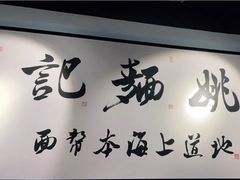 姚麵記
地道上海本帮面